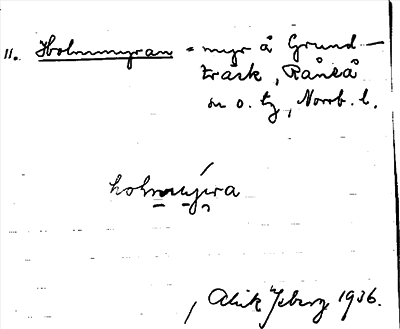 11. Holmmyran = myr å Grund-
träsk, Råneå
sn o. tg, Norrb. l.
holmmyra
1936.